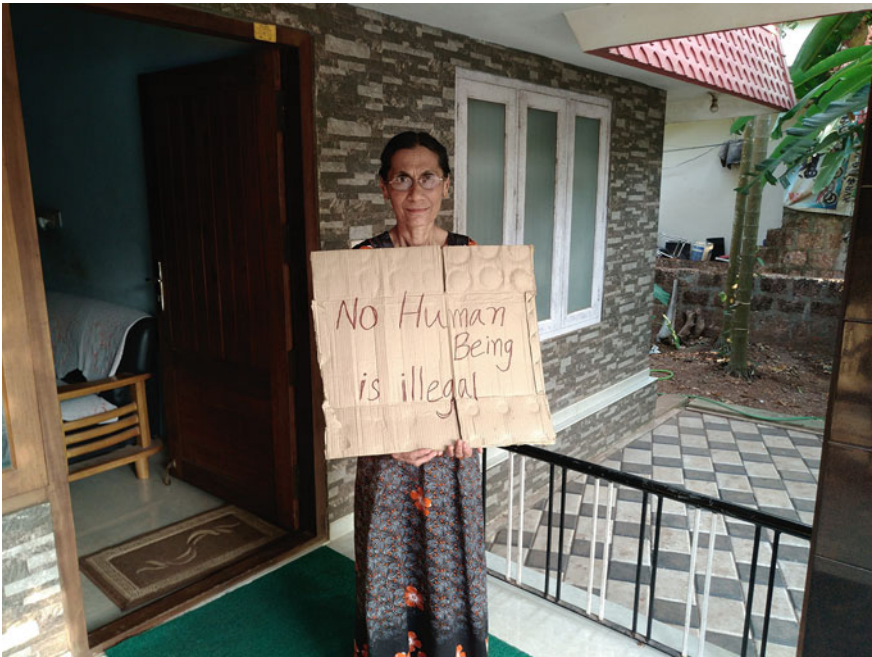 No Human
Being
is illegal